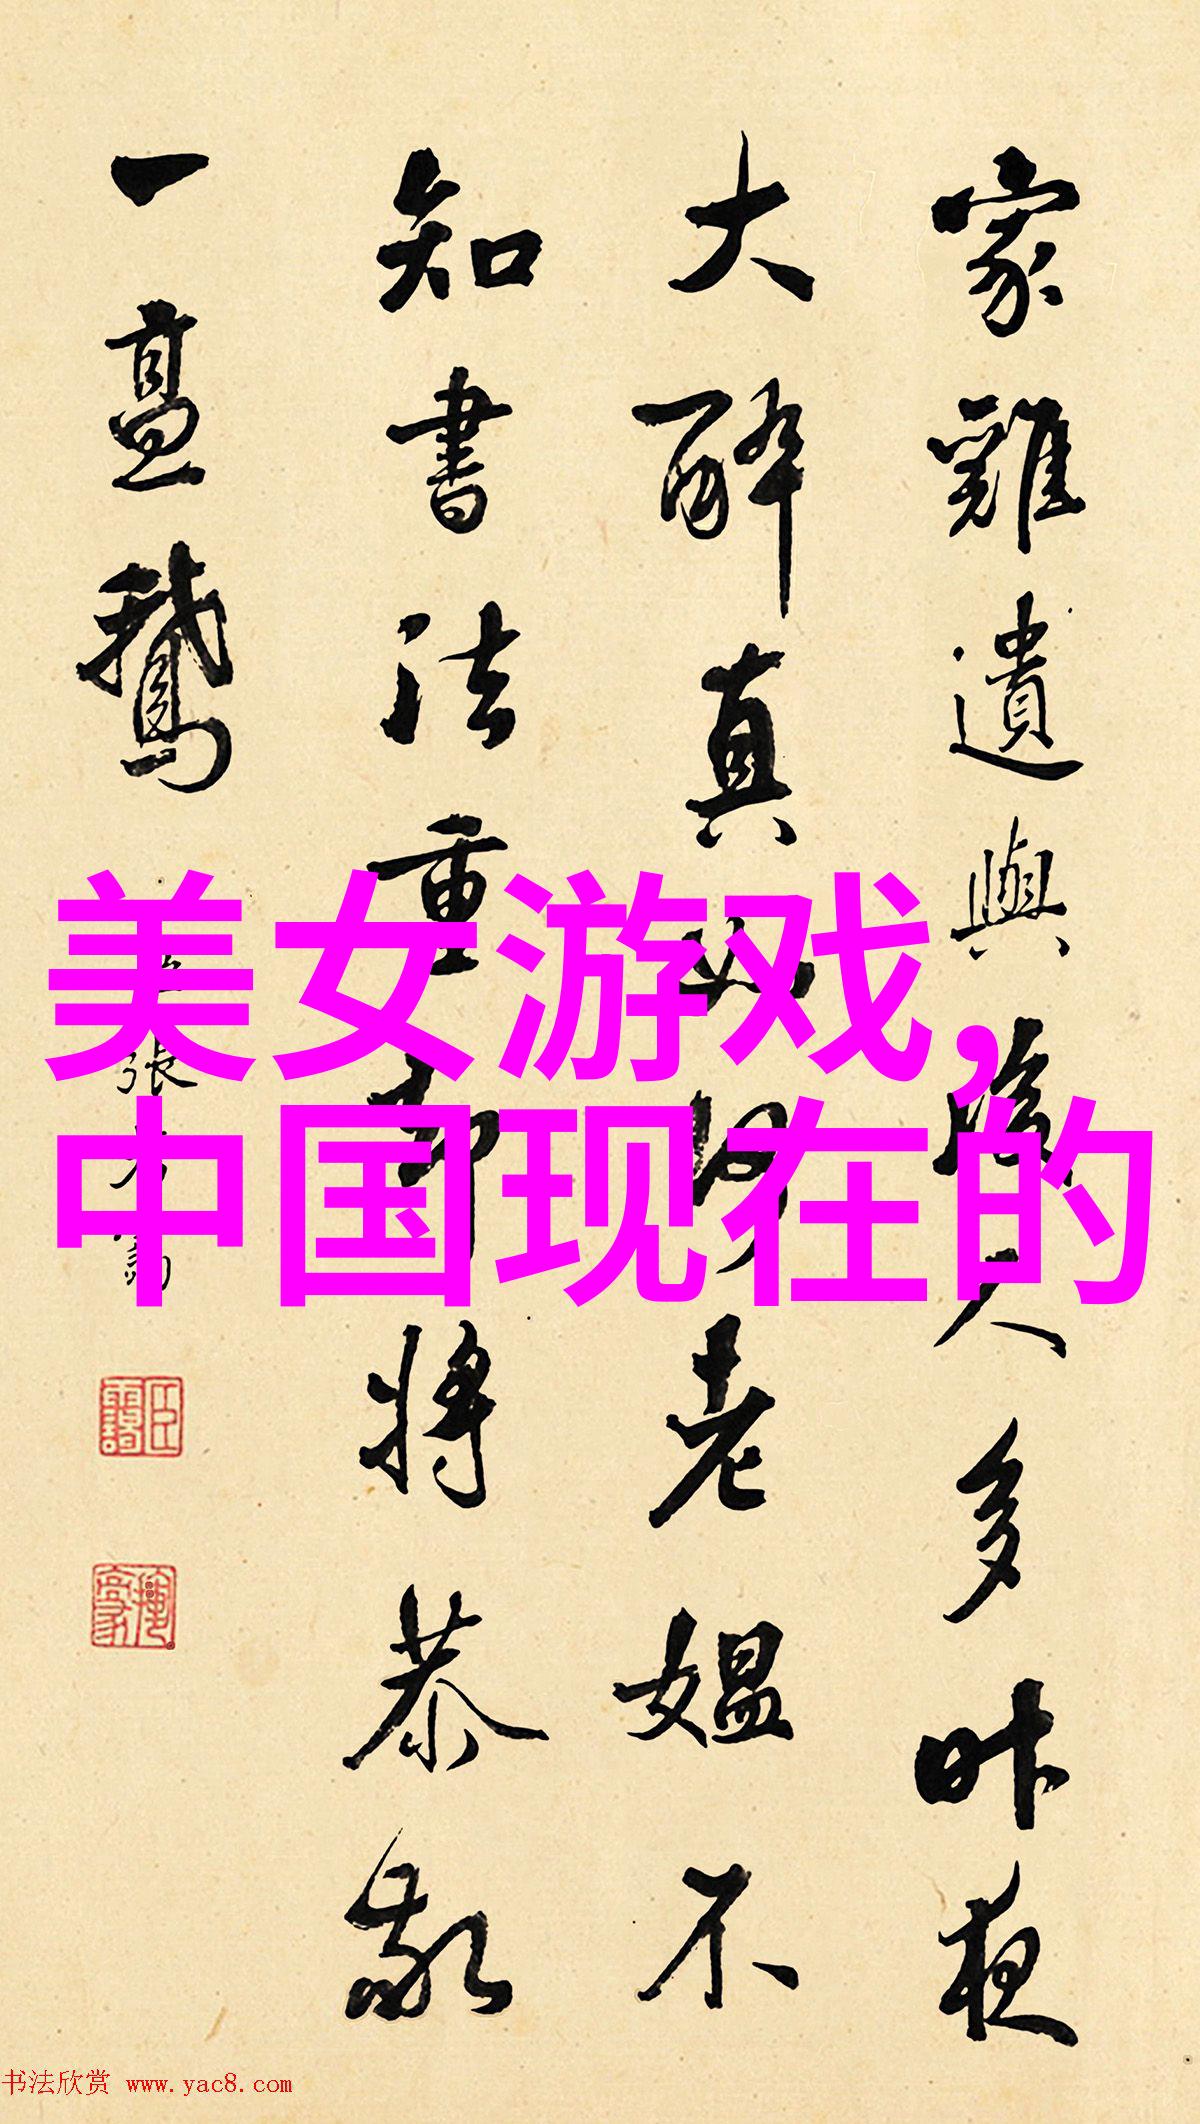 家雞遺與人多昨夜
大醉真如老媼不
知書法重將恭敬
一鵝
張
美女游戏，
中国现在的
书法欣赏 www.yac8.com